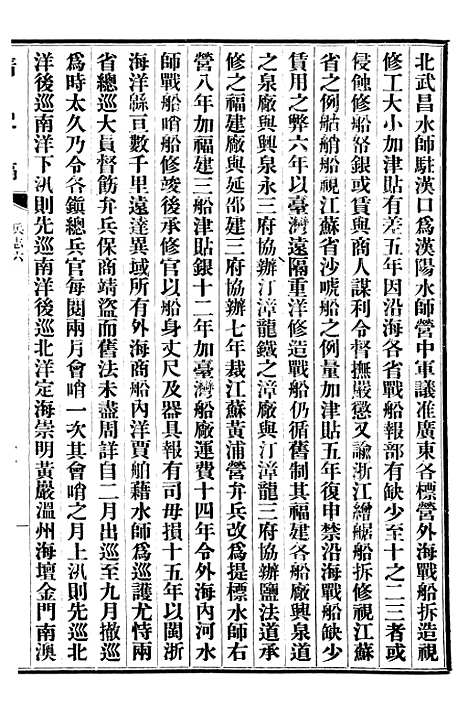 北武昌水師駐漢口爲漢陽水師營中軍議准廣東各標營外海戰船拆造視
修工大小加津貼有差五年因沿海各省戰船報部有缺少至十之二三者或
侵蝕修船帑銀或賃與商人謀利令督撫嚴懲又諭浙江繒艍船拆修視江蘇
省之例䑩艄船視江蘇省沙唬船之例量加津貼五年復申禁沿海戰船缺少
賃用之弊六年以臺灣遠隔重洋修造戰船仍循舊制其福建各船廠興泉道
之泉廠與興泉永三府協辦汀漳龍鐵之漳廠與汀漳龍三府協辦鹽法道承
修之福建廠與延邵建三府協辦七年裁江蘇黃浦營弁兵改爲提標水師右
營八年加福建三船津貼銀十二年加臺灣船廠運費十四年令外海內河水
師戰船哨船修竣後承修官以船身丈尺及器具報有司毋損十五年以閩浙
海洋緜亘數千里遠達異域所有外海商船內洋賈舶藉水師爲巡護尤恃兩
省總巡大員督飭弁兵保商靖盜而舊法未盡周詳自二月出巡至九月撤巡
爲時太久乃令各鎭總兵官每閱兩月會哨一次其會哨之月上汛則先巡北
洋後巡南洋下汛則先巡南洋後巡北洋定海崇明黃巖溫州海壇金門南澳
兵志六